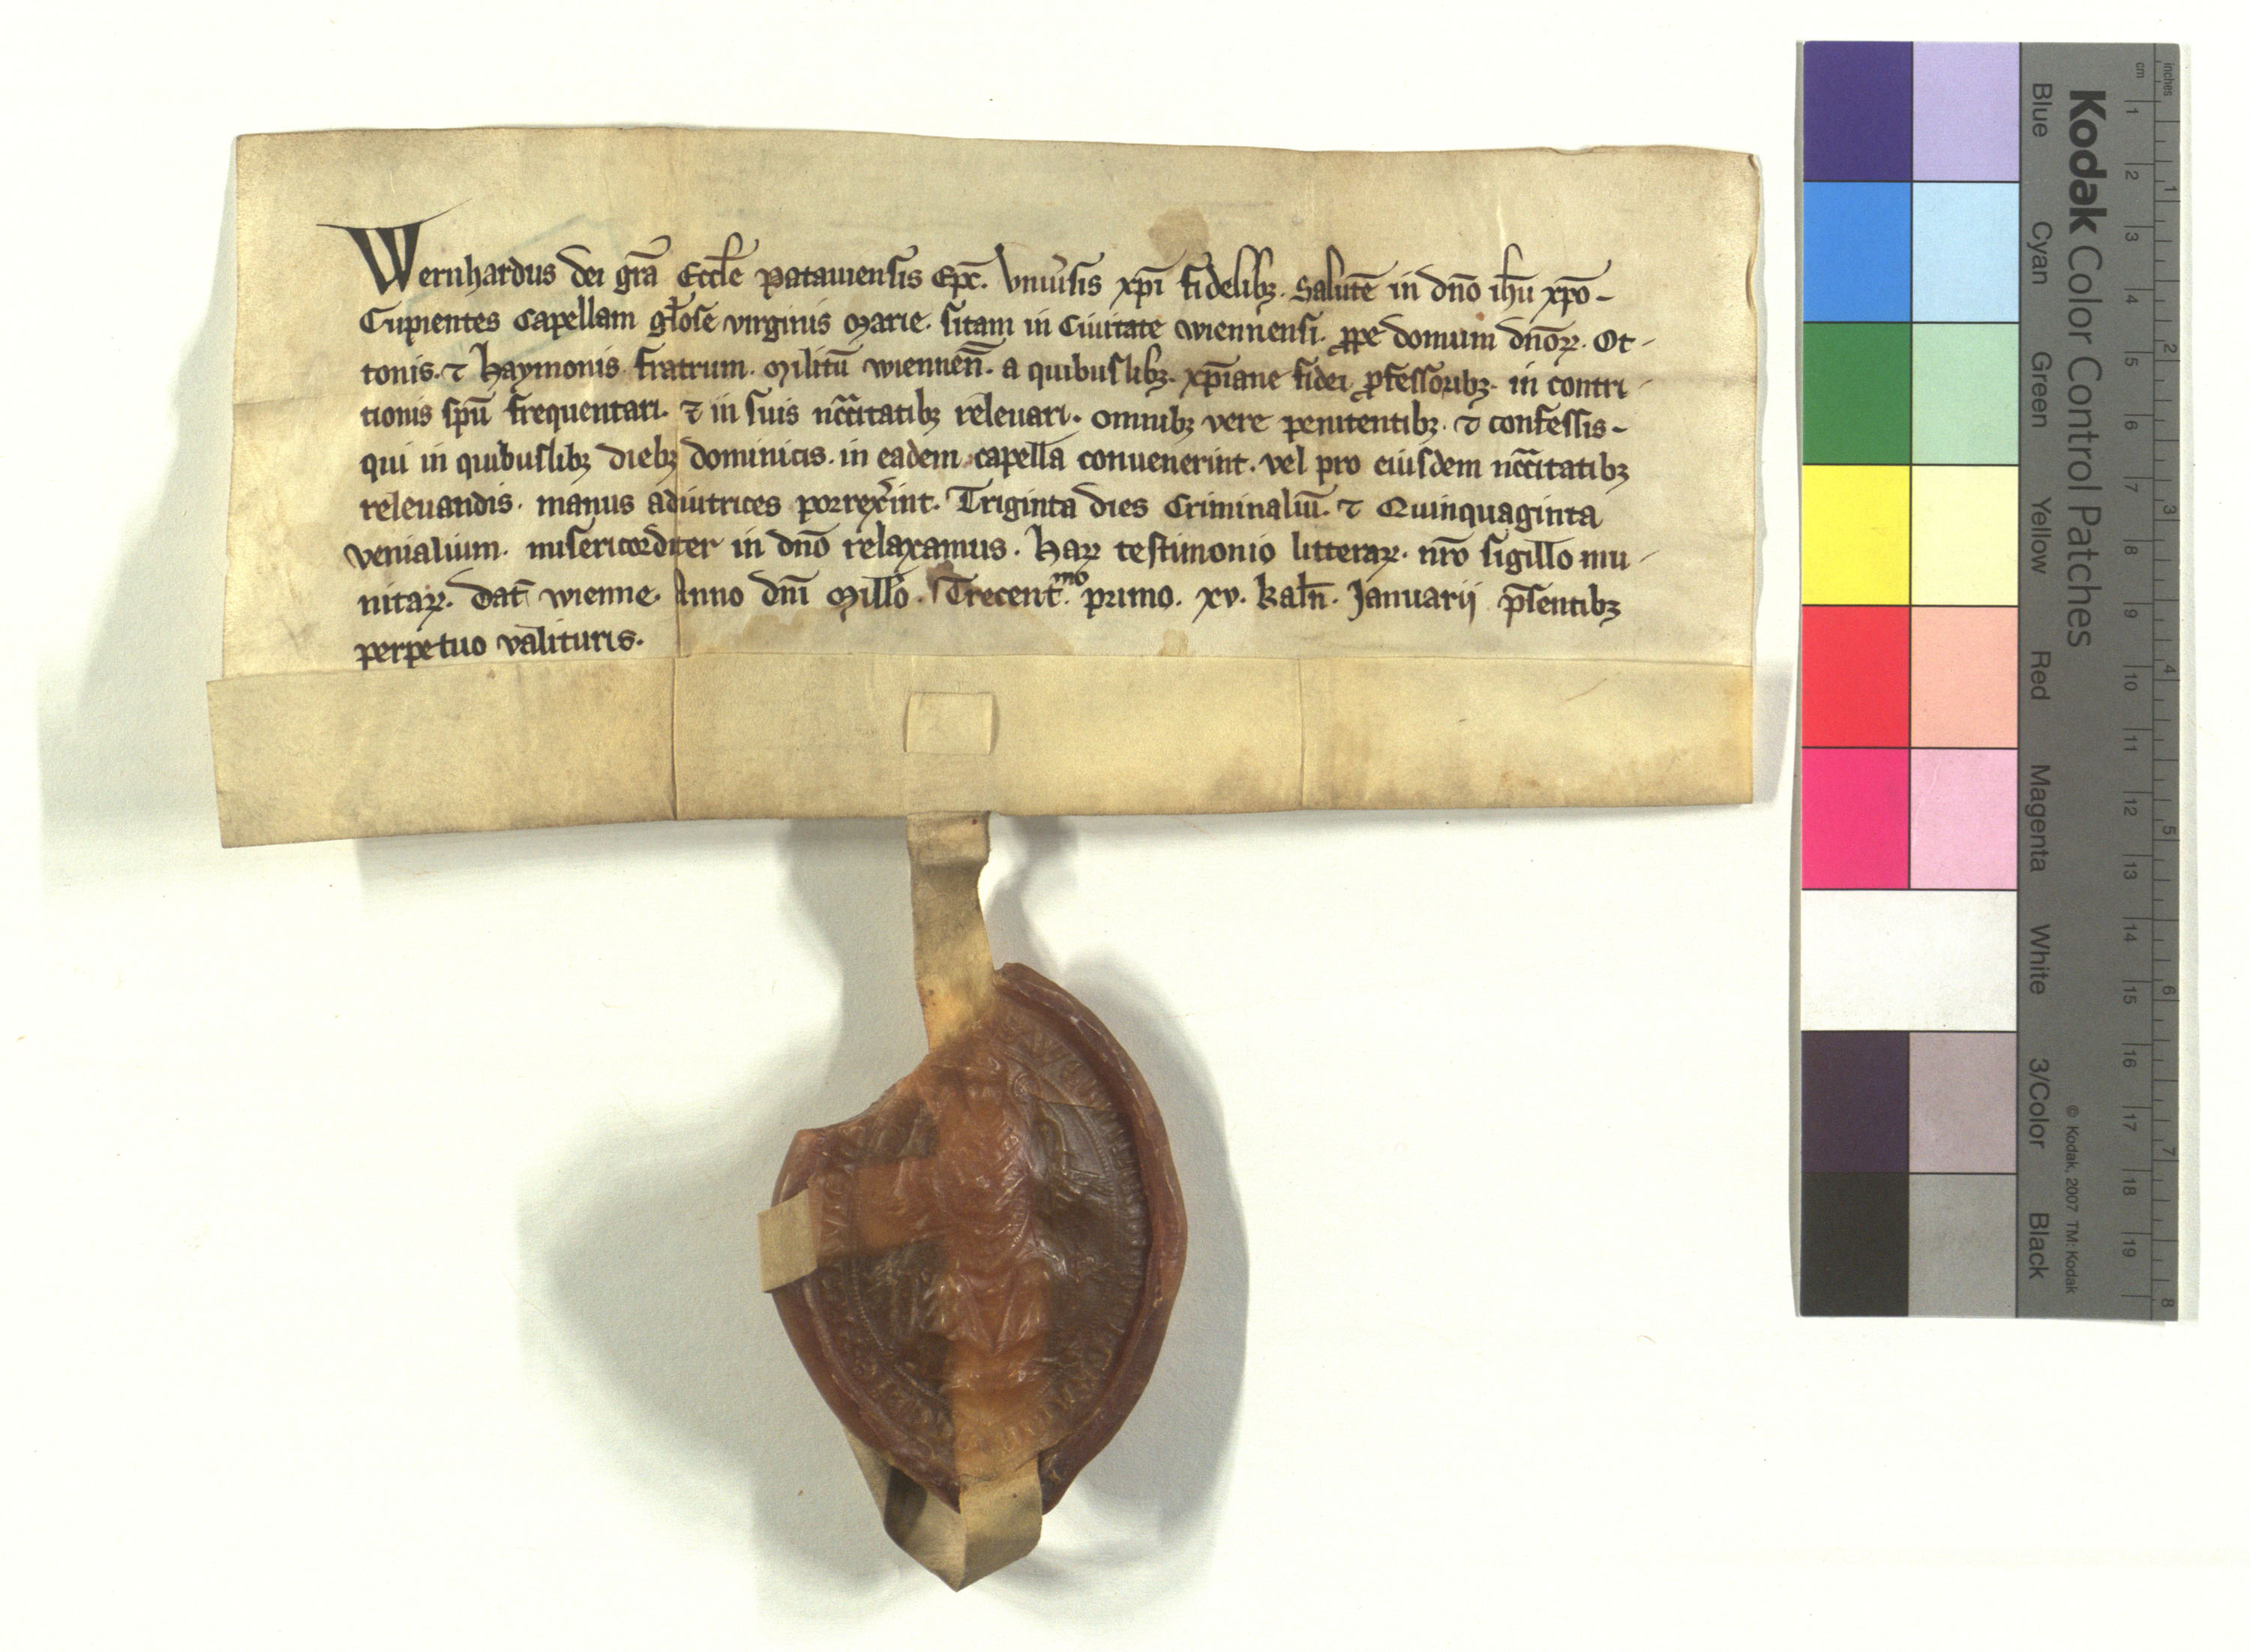 Wernhardus dei gr̄a Eccl̄e patauiensis Ep̄c. Vniu̾sis xp̄i fidelibꝫ. Salutē in dn̄o ih̄u xp̄o -
Cupientes Capellam gl̄ose virginis Marie. sitam in Ciuitate wiennensi. ꝓpe domum dn̄oꝝ. Ot -
tonis. ⁊ haymonis fratrum. Militū wiennen̄. a quibuslibꝫ. xp̄iane fidei ꝓfessoribꝫ. in contri -
tionis sp̄u frequentari. ⁊ in suis nc̄c̄itatibꝫ releuari. omnibꝫ vere penitentibꝫ. ⁊ confessis -
qui in quibuslibꝫ diebꝫ dominicis. in eadem capella conuenerint. vel pro eiusdem nc̄c̄itatibꝫ
releuandis. manus adiutrices porrex̾int. Triginta dies Criminaliū. ⁊ Quinquaginta
venialium. misericorditer in dn̄o relaxamus. haꝝ testimonio litteraꝝ. nr̄o sigillo mu -
nitaꝝ. dat̄ wienne. Anno dn̄i Mill̄o. Trecent.ᵐᵒ primo. xv. kal̄n. Januarij p̄sentibꝫ
perpetuo valituris.
Kodak Color Control Patches
Blue Cyan Green Yellow Red Magenta White 3/Color Black
© Kodak, 2007 TM: Kodak
cm 1 2 3 4 5 6 7 8 9 10 11 12 13 14 15 16 17 18 19
inches 1 2 3 4 5 6 7 8